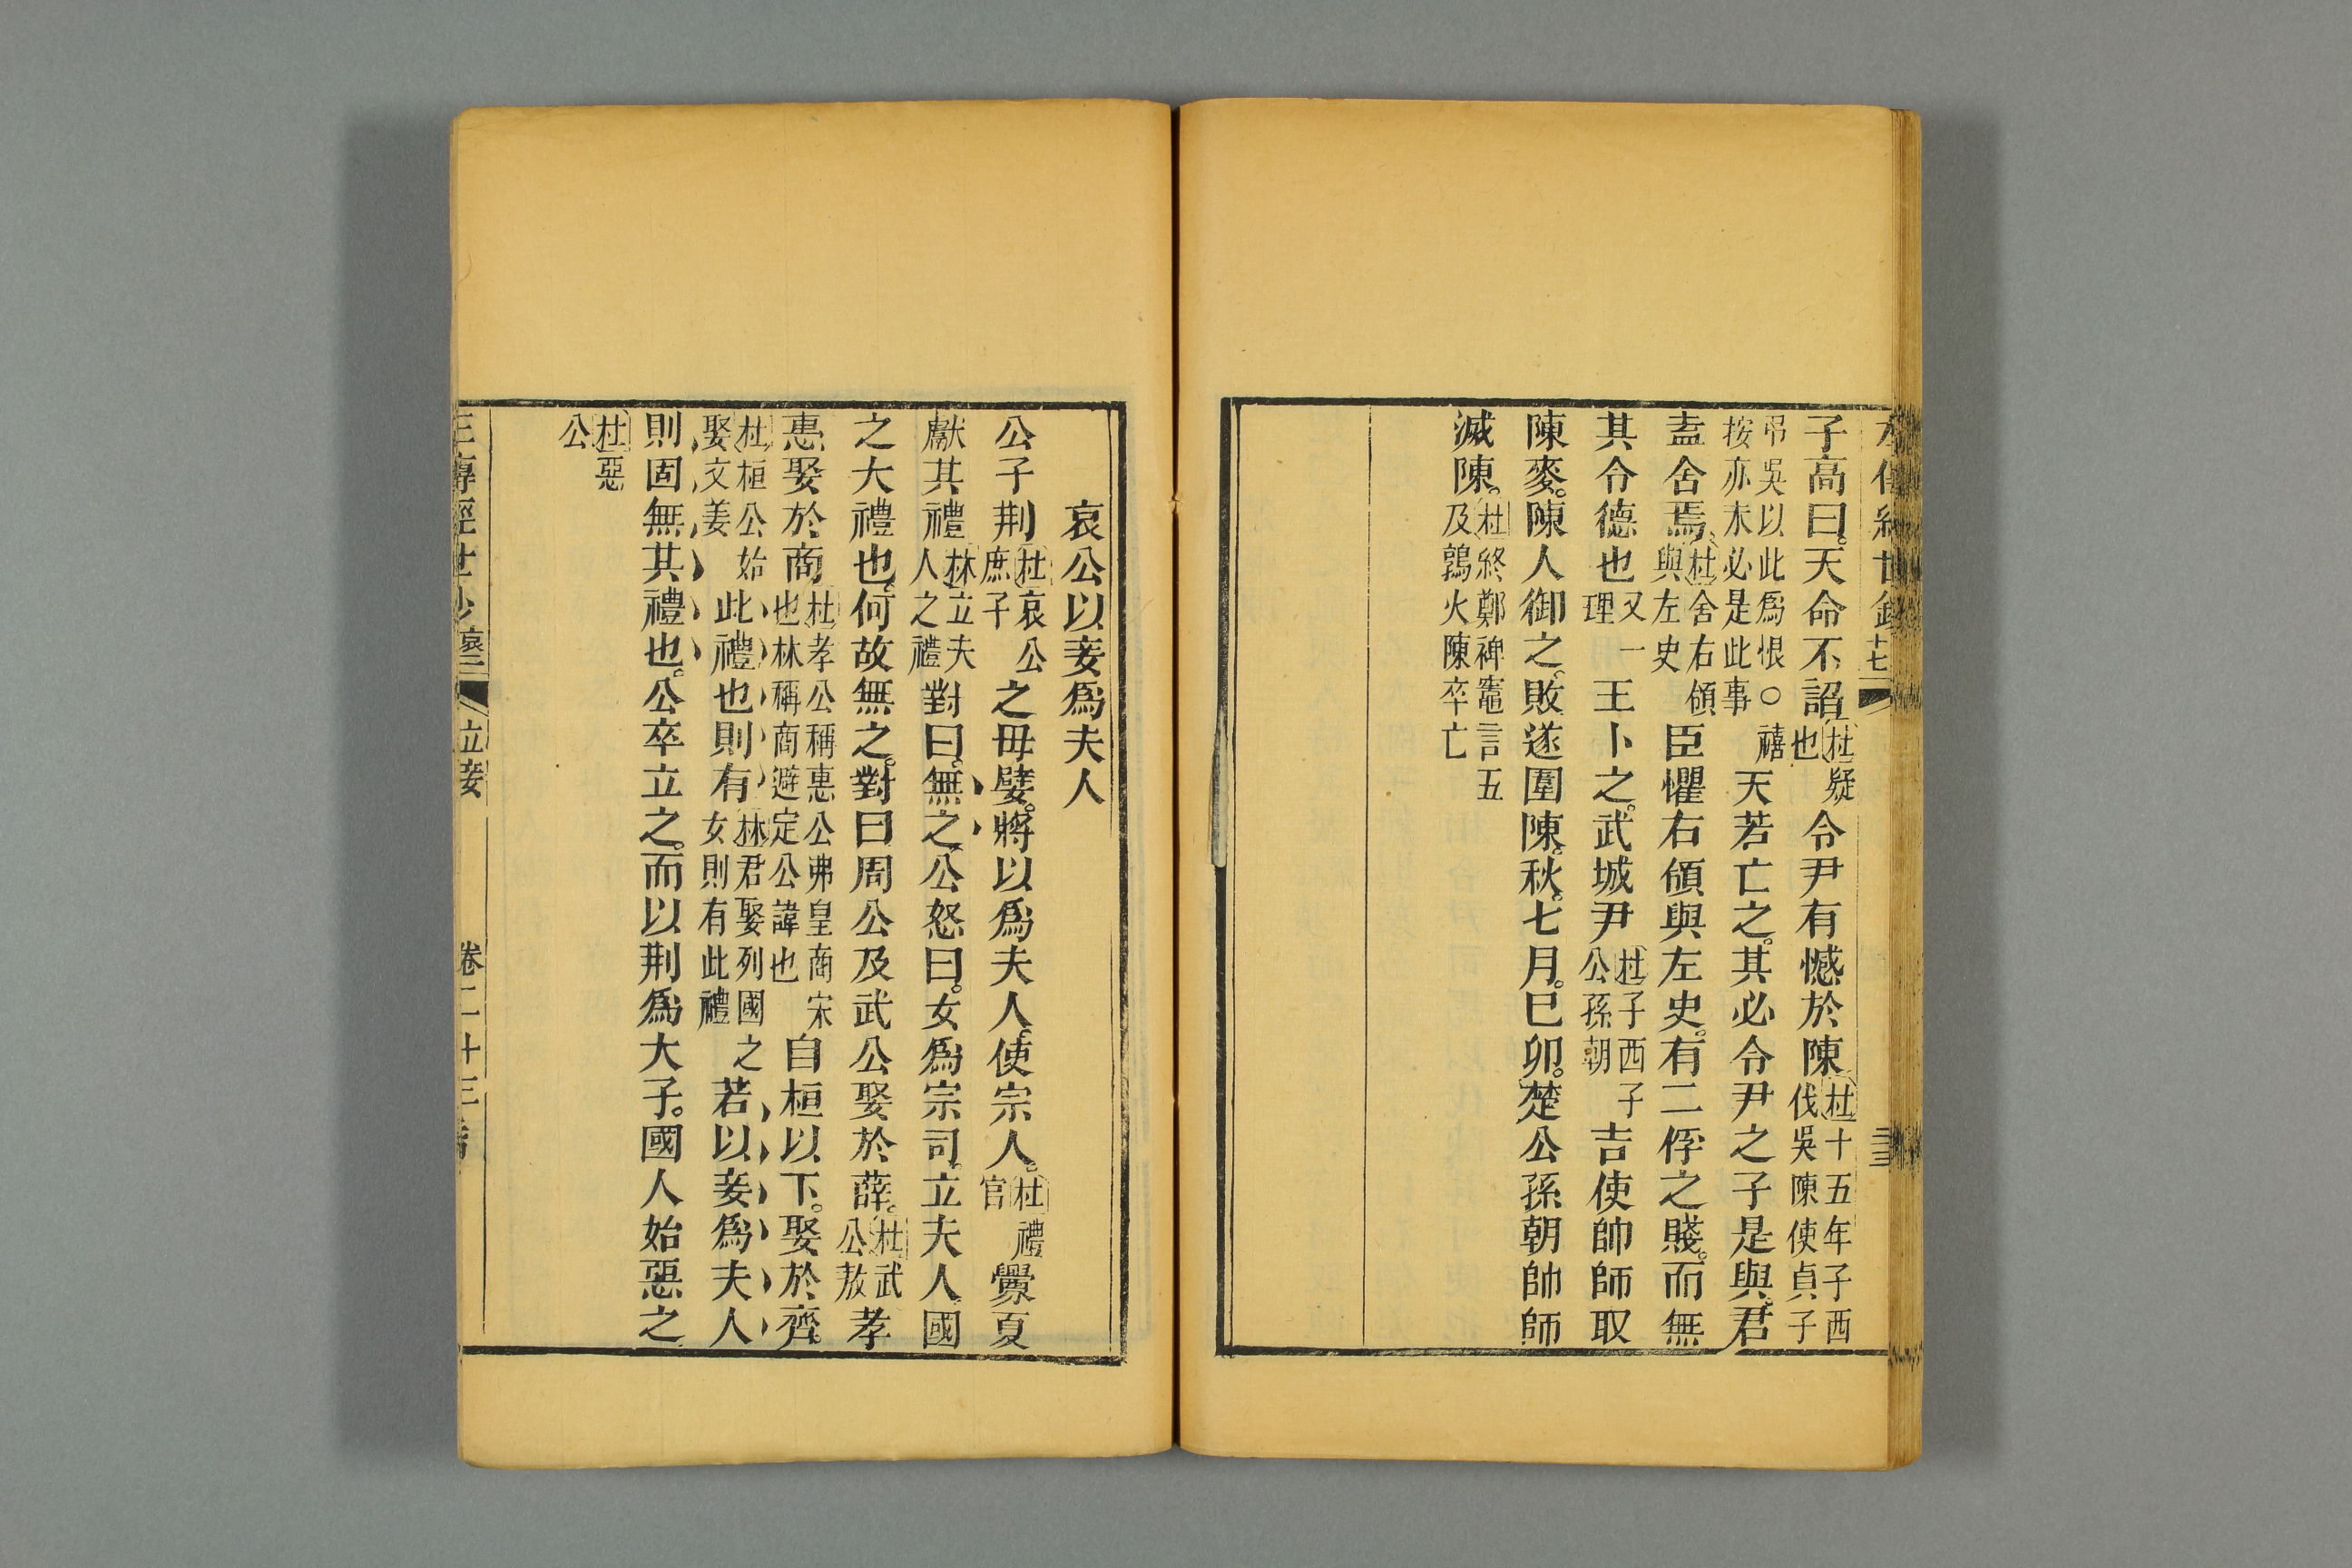 子高曰天命不謟杜疑也令尹有憾於陳杜十五年子西伐吳陳使貞子
弔吳以此爲恨○禧按亦未必是此事天若亡之其必令尹之子是與君
盍舍焉杜舍右領與左史臣懼右領與左史有二俘之賤而無
其令德也又一理王卜之武城尹杜子西子公孫朝吉使帥師取
陳麥陳人御之敗遂圍陳秋七月巳卯楚公孫朝帥師
滅陳杜終鄭裨竈言五及鶉火陳卒亡
哀公以妾爲夫人
公子荆杜哀公庶子之毋嬖將以爲夫人使宗人杜禮官釁夏
獻其禮林立夫人之禮對曰無之公怒曰女爲宗司立夫人國
之大禮也何故無之對曰周公及武公娶於薛杜武公敖孝
惠娶於商杜孝公稱惠公弗皇商宋也林稱商避定公諱也自桓以下娶於齊
杜桓公始娶文姜此禮也則有林君娶列國之女則有此禮若以妾爲夫人
則固無其禮也公卒立之而以荆爲大子國人始惡之
杜惡公
立妾
卷二十三